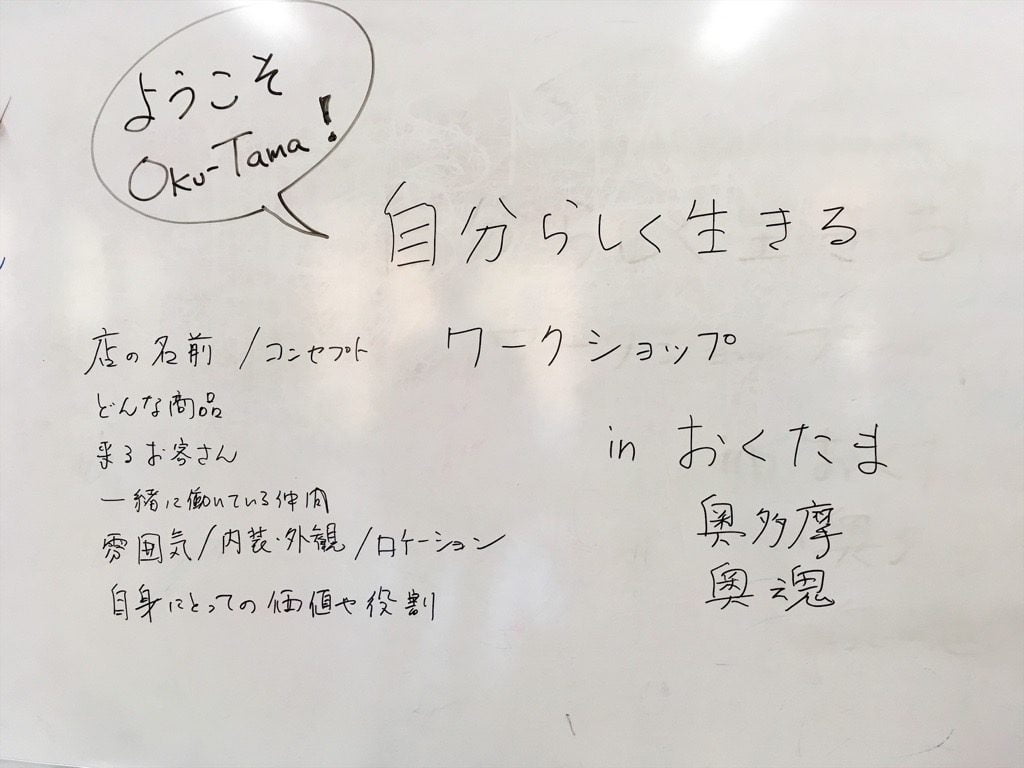 ようこそ
Oku-Tama!
自分らしく生きる
ワークショップ
in おくたま
奥多摩
奥魂
店の名前/コンセプト
どんな商品
来るお客さん
一緒に働いている仲間
雰囲気/内装・外観/ロケーション
自身にとっての価値や役割